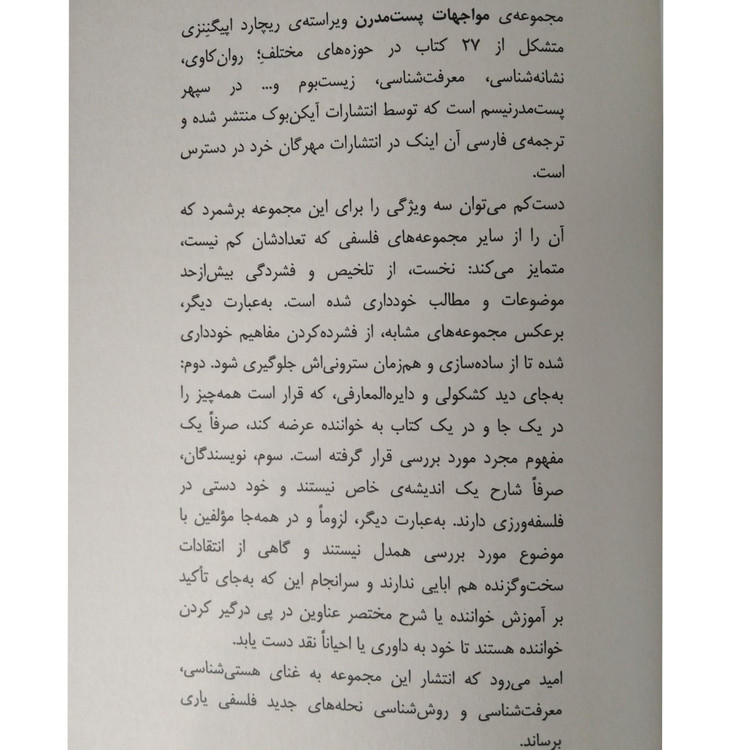 مجموعه‌ی مواجهات پست‌مدرن ویراسته‌ی ریچارد اپیگننزی
متشکل از ۲۷ کتاب در حوزه‌های مختلفِ؛ روان‌کاوی،
نشانه‌شناسی، معرفت‌شناسی، زیست‌بوم و... در سپهر
پست‌مدرنیسم است که توسط انتشارات آیکن‌بوک منتشر شده و
ترجمه‌ی فارسی آن اینک در انتشارات مهرگان خرد در دسترس
است.
دست‌کم می‌توان سه ویژگی را برای این مجموعه برشمرد که
آن را از سایر مجموعه‌های فلسفی که تعدادشان کم نیست،
متمایز می‌کند: نخست، از تلخیص و فشردگی بیش‌ازحد
موضوعات و مطالب خودداری شده است. به‌عبارت دیگر،
برعکس مجموعه‌های مشابه، از فشرده‌کردن مفاهیم خودداری
شده تا از ساده‌سازی و هم‌زمان سترونی‌اش جلوگیری شود. دوم:
به‌جای دید کشکولی و دایره‌المعارفی، که قرار است همه‌چیز را
در یک جا و در یک کتاب به خواننده عرضه کند، صرفاً یک
مفهوم مجرد مورد بررسی قرار گرفته است. سوم، نویسندگان،
صرفاً شارح یک اندیشه‌ی خاص نیستند و خود دستی در
فلسفه‌ورزی دارند. به‌عبارت دیگر، لزوماً و در همه‌جا مؤلفین با
موضوع مورد بررسی همدل نیستند و گاهی از انتقادات
سخت‌وگزنده هم ابایی ندارند و سرانجام این که به‌جای تأکید
بر آموزش خواننده یا شرح مختصر عناوین در پی درگیر کردن
خواننده هستند تا خود به داوری یا احیاناً نقد دست یابد.
امید می‌رود که انتشار این مجموعه به غنای هستی‌شناسی،
معرفت‌شناسی و روش‌شناسی نحله‌های جدید فلسفی یاری
برساند.